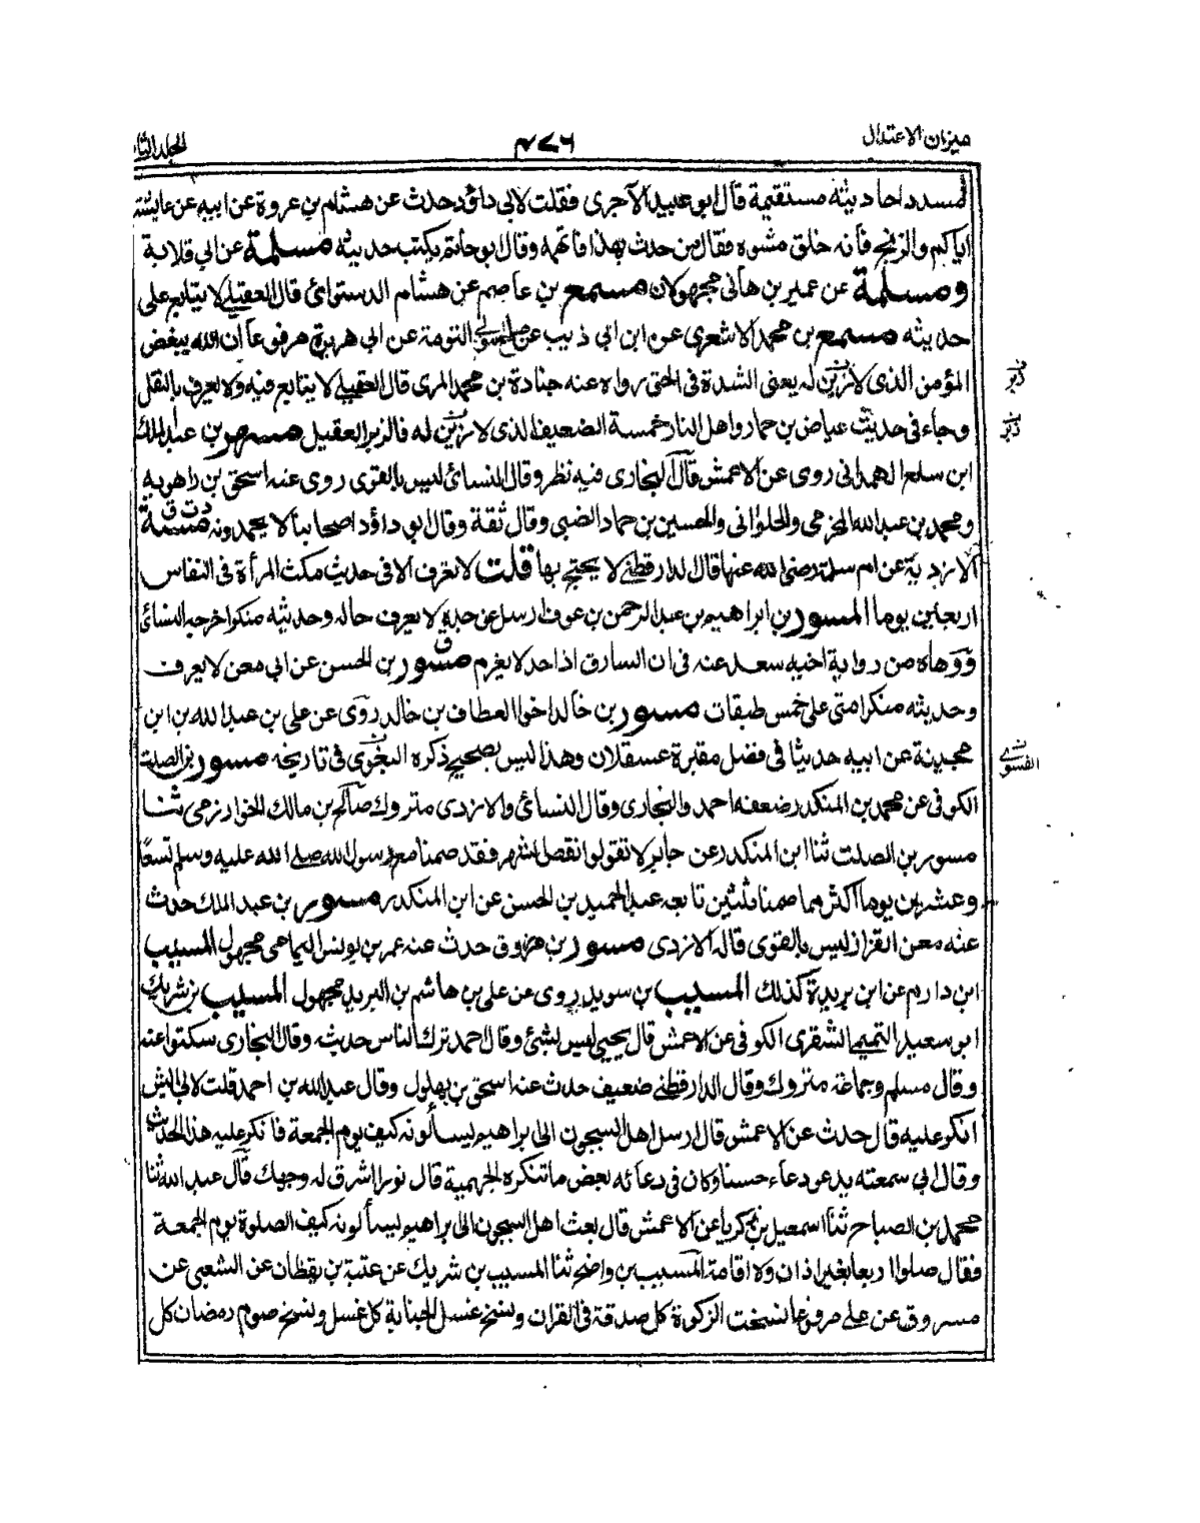 ميزان الاعتدال
٤٧٦
الجلد الثا
لمسدد احاديثه مستقيمة قال ابو عبيد الآجرى فقلت لابى داؤد حدث عن هشام بن عروة عن ابيه عن عايشة
اياكم والزنج فانه خلق مشوه فقال من حدث بهذا فاتهمه وقال ابو حاتم يكتب حديثه مسلمة عن ابي قلابة
ومسلمة عن عمير بن هانى مجهولان مسمع بن عاصم عن هشام الدستوائى قال العقيلى لا يتابع على
حديثه مسمع بن محمد الاشعرى عن ابن ابي ذيب عن صالح مولى التومة عن ابي هريرة مرفوعا ان الله يبغض
المؤمن الذى لا زبر له يعنى الشدة فى الحق رواه عنه جنادة بن محمد المرى قال العقيلى لا يتابع فيه ولا يعرف بالنقل
وجاء فى حديث عياض بن حمار واهل النار خمسة الضعيف الذى لا زبر له فالزبر العقيل مسهر بن عبد الملك
ابن سلع الهمدانى روى عن الاعمش قال البخارى فيه نظر وقال النسائى ليس بالقوى روى عنه اسحق بن راهويه
ومحمد بن عبد الله المخرمى والحلوانى والحسين بن حماد الضبى وقال ثقة وقال ابو داؤد اصحابنا لا يحمدونه مسة
الازدية عن ام سلمة رضى الله عنها قال الدارقطنى لا يحتج بها قلت لا تعرف الا فى حديث مكث المرأة فى النفاس
اربعين يوما المسور بن ابراهيم بن عبد الرحمن بن عوف ارسل عن جده لا يعرف حاله وحديثه منكر اخرجه النسائى
ووهاه من رواية اخيه سعد عنه فى ان السارق اذا حد لا يغرم مسور بن الحسن عن ابي معن لا يعرف
وحديثه منكر امتى على خمس طبقات مسور بن خالد اخو العطاف بن خالد روى عن على بن عبد الله بن ابن
مجينة عن ابيه حديثا فى فضل مقبرة عسقلان وهذا ليس بصحيح ذكره البغوى فى تاريخه مسور بن الصلت
الكوفى عن محمد بن المنكدر ضعفه احمد والبخارى وقال النسائى والازدى متروك صالح بن مالك الخوارزمى ثنا
مسور بن الصلت ثنا ابن المنكدر عن جابر لا تقولوا نقص الشهر فقد صمنا مع رسول الله صلى الله عليه وسلم تسعا
وعشرين يوما اكثر مما صمنا ثلثين تابعه عبد الحميد بن الحسن عن ابن المنكدر مسور بن عبد الملك حدث
عنه معن القزاز ليس بالقوى قاله الازدى مسور بن مرزوق حدث عنه عمر بن يونس اليمامى مجهول المسيب
ابن دارم عن ابن بريدة كذلك المسيب بن سويد روى عن على بن هاشم بن البريد مجهول المسيب بن شريك
ابو سعيد التميمى الشقرى الكوفى عن الاعمش قال يحيى ليس بشئ وقال احمد ترك الناس حديثه وقال البخارى سكتوا عنه
وقال مسلم وجماعة متروك وقال الدارقطنى ضعيف حدث عنه اسحق بن بهلول وقال عبد الله بن احمد قلت لابى ايش
انكر عليه قال حدث عن الاعمش قال ارسل اهل السجون الى ابراهيم يسألونه كيف يوم الجمعة فانكر عليه هذا الحديث
وقال ابي سمعته يدعو دعاء حسنا وكان فى دعائه بعض ما تنكره الجهمية قال نورا اشرق له وجهك قال عبد الله ثنا
محمد بن الصباح ثنا اسمعيل بن زكريا عن الاعمش قال بعث اهل السجون الى ابراهيم يسألونه كيف الصلوة يوم الجمعة
فقال صلوا اربعا بغير اذان ولا اقامة المسيب بن واضح ثنا المسيب بن شريك عن عتبة بن يقظان عن الشعبي عن
مسروق عن على مرفوعا نسخت الزكوة كل صدقة فى القران ونسخ غسل الجنابة كل غسل ونسخ صوم رمضان كل